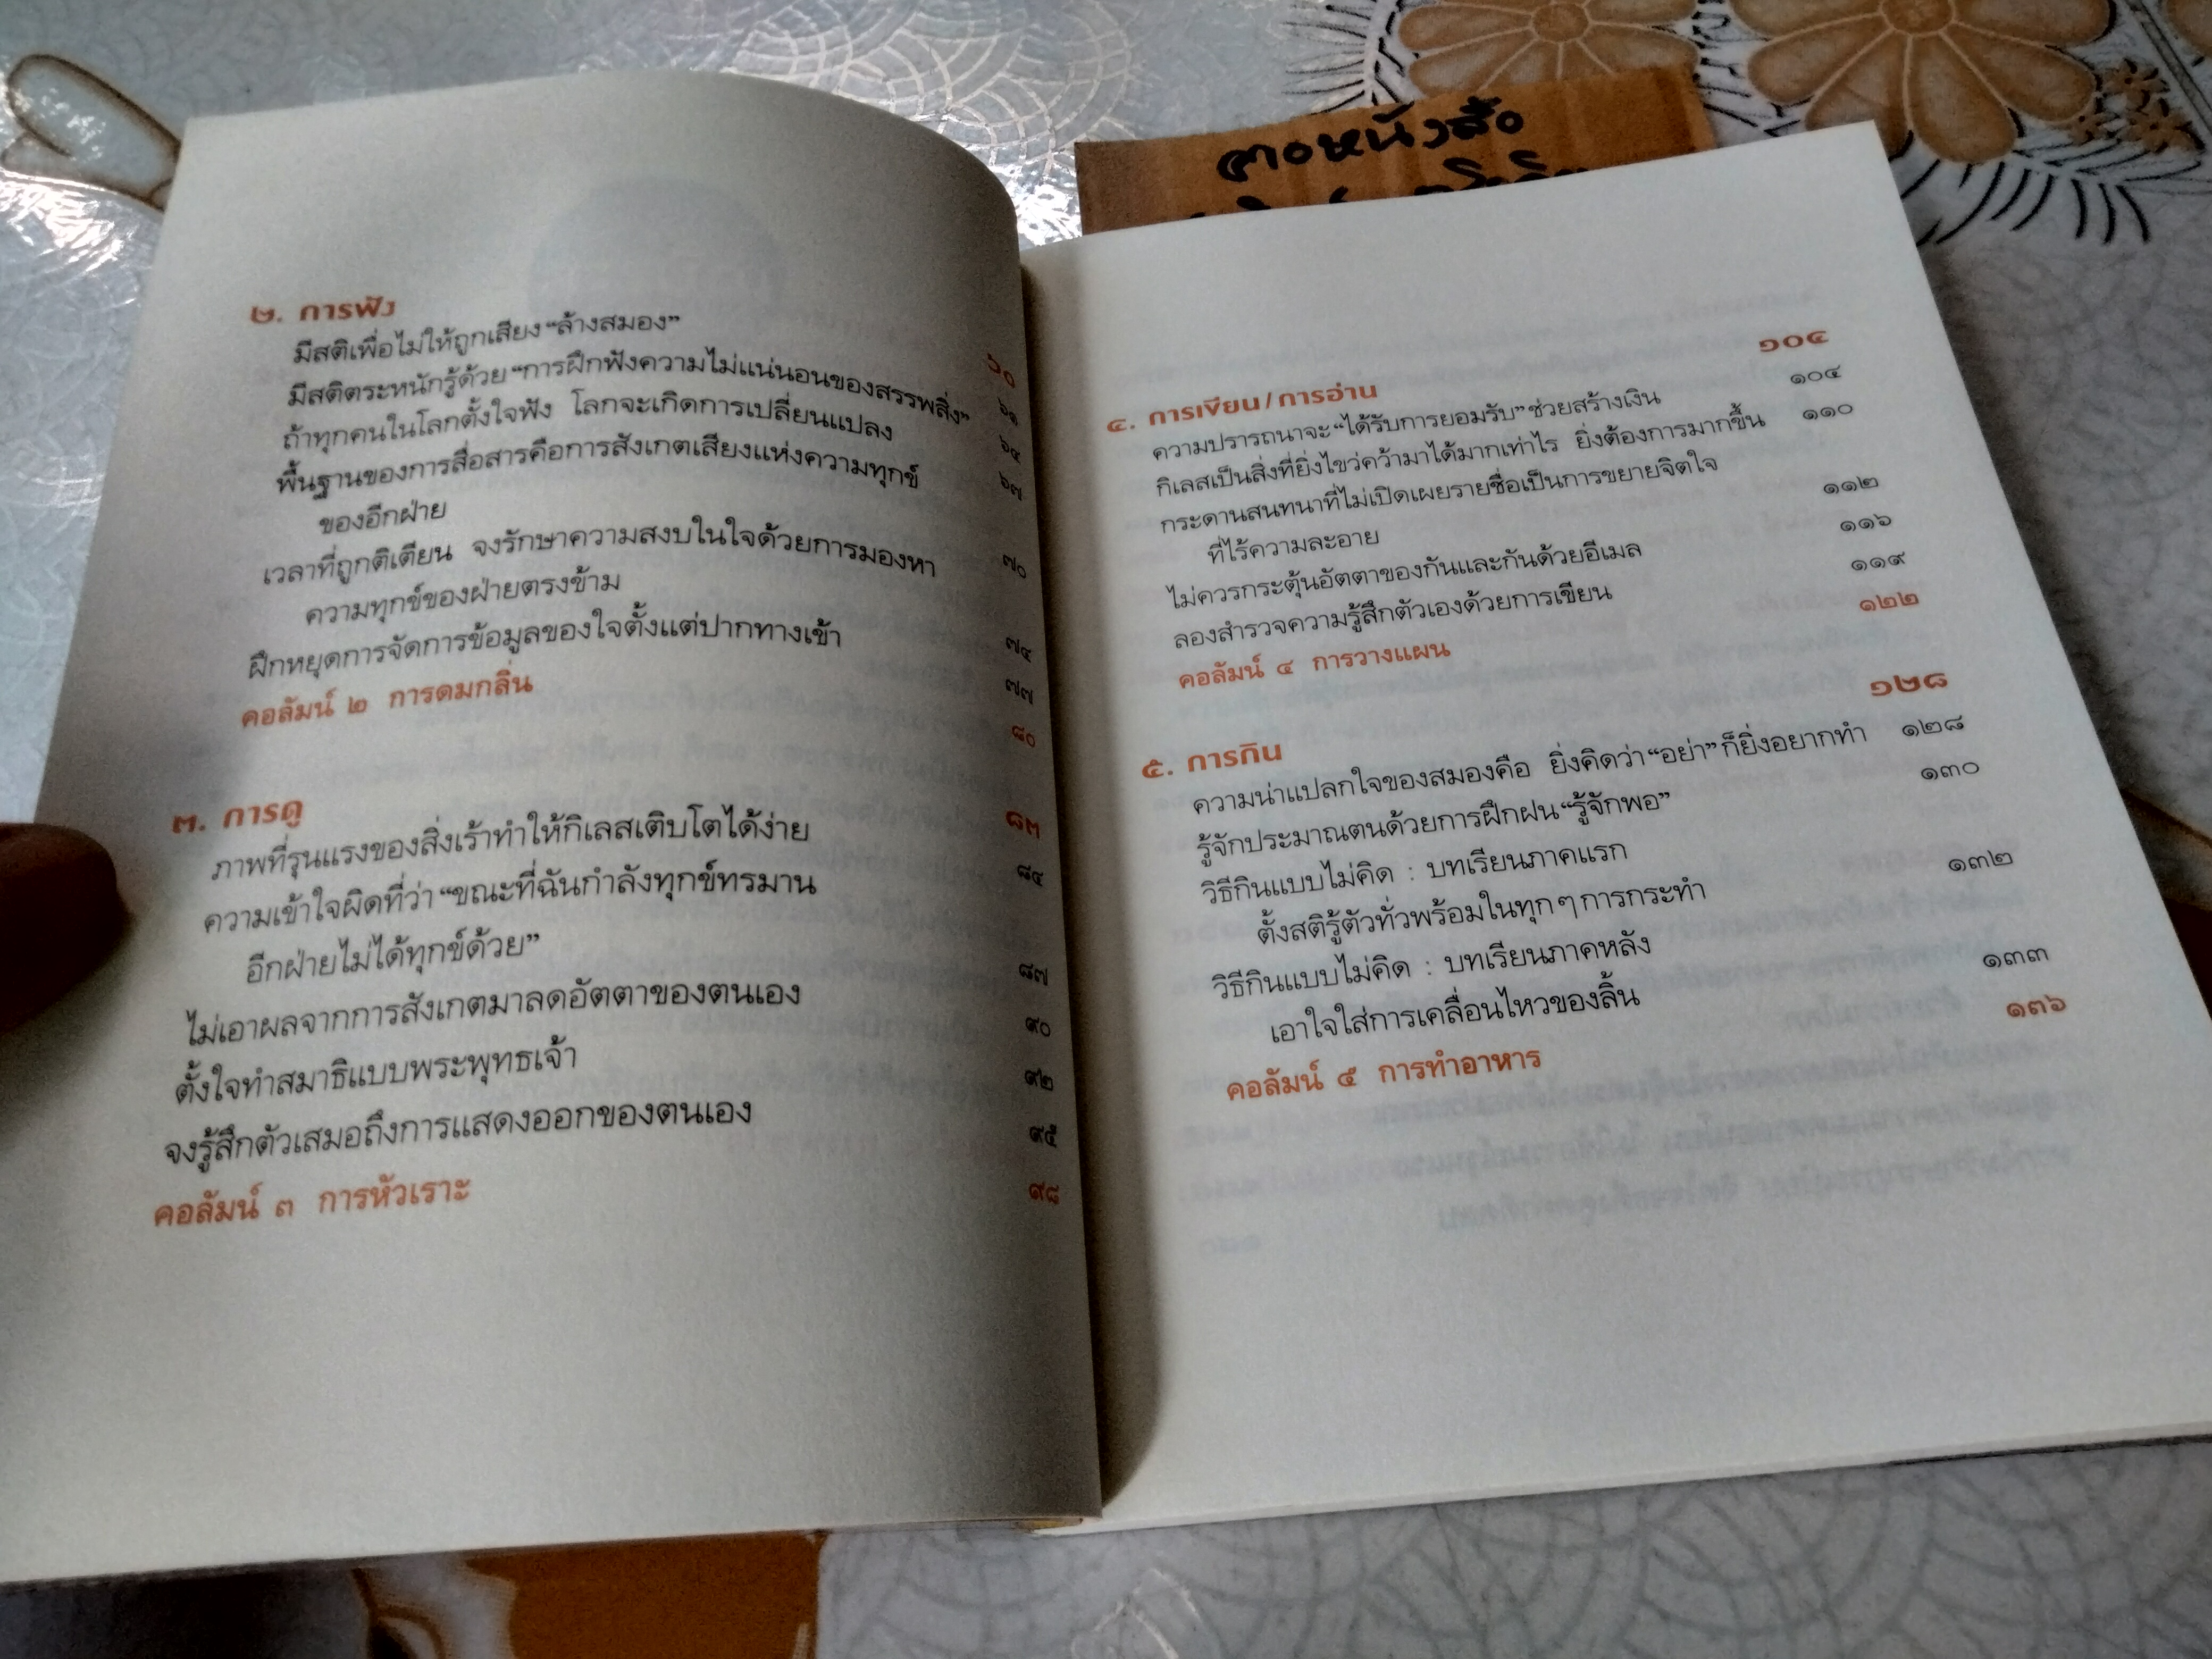 คอหนังสือ
๒. การฟัง ๖๐
มีสติเพื่อไม่ให้ถูกเสียง “ล้างสมอง” ๖๑
มีสติตระหนักรู้ด้วย “การฝึกฟังความไม่แน่นอนของสรรพสิ่ง” ๖๔
ถ้าทุกคนในโลกตั้งใจฟัง โลกจะเกิดการเปลี่ยนแปลง ๖๗
พื้นฐานของการสื่อสารคือการสังเกตเสียงแห่งความทุกข์
ของอีกฝ่าย ๗๐
เวลาที่ถูกติเตียน จงรักษาความสงบในใจด้วยการมองหา
ความทุกข์ของฝ่ายตรงข้าม ๗๔
ฝึกหยุดการจัดการข้อมูลของใจตั้งแต่ปากทางเข้า ๗๗
คอลัมน์ ๒ การดมกลิ่น ๘๐
๓. การดู ๘๓
ภาพที่รุนแรงของสิ่งเร้าทำให้กิเลสเติบโตได้ง่าย ๘๔
ความเข้าใจผิดที่ว่า “ขณะที่ฉันกำลังทุกข์ทรมาน
อีกฝ่ายไม่ได้ทุกข์ด้วย” ๘๗
ไม่เอาผลจากการสังเกตมาลดอัตตาของตนเอง ๙๐
ตั้งใจทำสมาธิแบบพระพุทธเจ้า ๙๒
จงรู้สึกตัวเสมอถึงการแสดงออกของตนเอง ๙๕
คอลัมน์ ๓ การหัวเราะ ๙๘
๔. การเขียน / การอ่าน ๑๐๔
ความปรารถนาจะ “ได้รับการยอมรับ” ช่วยสร้างเงิน ๑๐๔
กิเลสเป็นสิ่งที่ยิ่งไขว่คว้ามาได้มากเท่าไร ยิ่งต้องการมากขึ้น ๑๑๐
กระดานสนทนาที่ไม่เปิดเผยรายชื่อเป็นการขยายจิตใจ
ที่ไร้ความละอาย ๑๑๒
ไม่ควรกระตุ้นอัตตาของกันและกันด้วยอีเมล ๑๑๖
ลองสำรวจความรู้สึกตัวเองด้วยการเขียน ๑๑๙
คอลัมน์ ๔ การวางแผน ๑๒๒
๕. การกิน ๑๒๘
ความน่าแปลกใจของสมองคือ ยิ่งคิดว่า “อย่า” ก็ยิ่งอยากทำ ๑๒๘
รู้จักประมาณตนด้วยการฝึกฝน “รู้จักพอ” ๑๓๐
วิธีกินแบบไม่คิด : บทเรียนภาคแรก
ตั้งสติรู้ตัวทั่วพร้อมในทุก ๆ การกระทำ ๑๓๒
วิธีกินแบบไม่คิด : บทเรียนภาคหลัง
เอาใจใส่การเคลื่อนไหวของลิ้น ๑๓๓
คอลัมน์ ๕ การทำอาหาร ๑๓๖